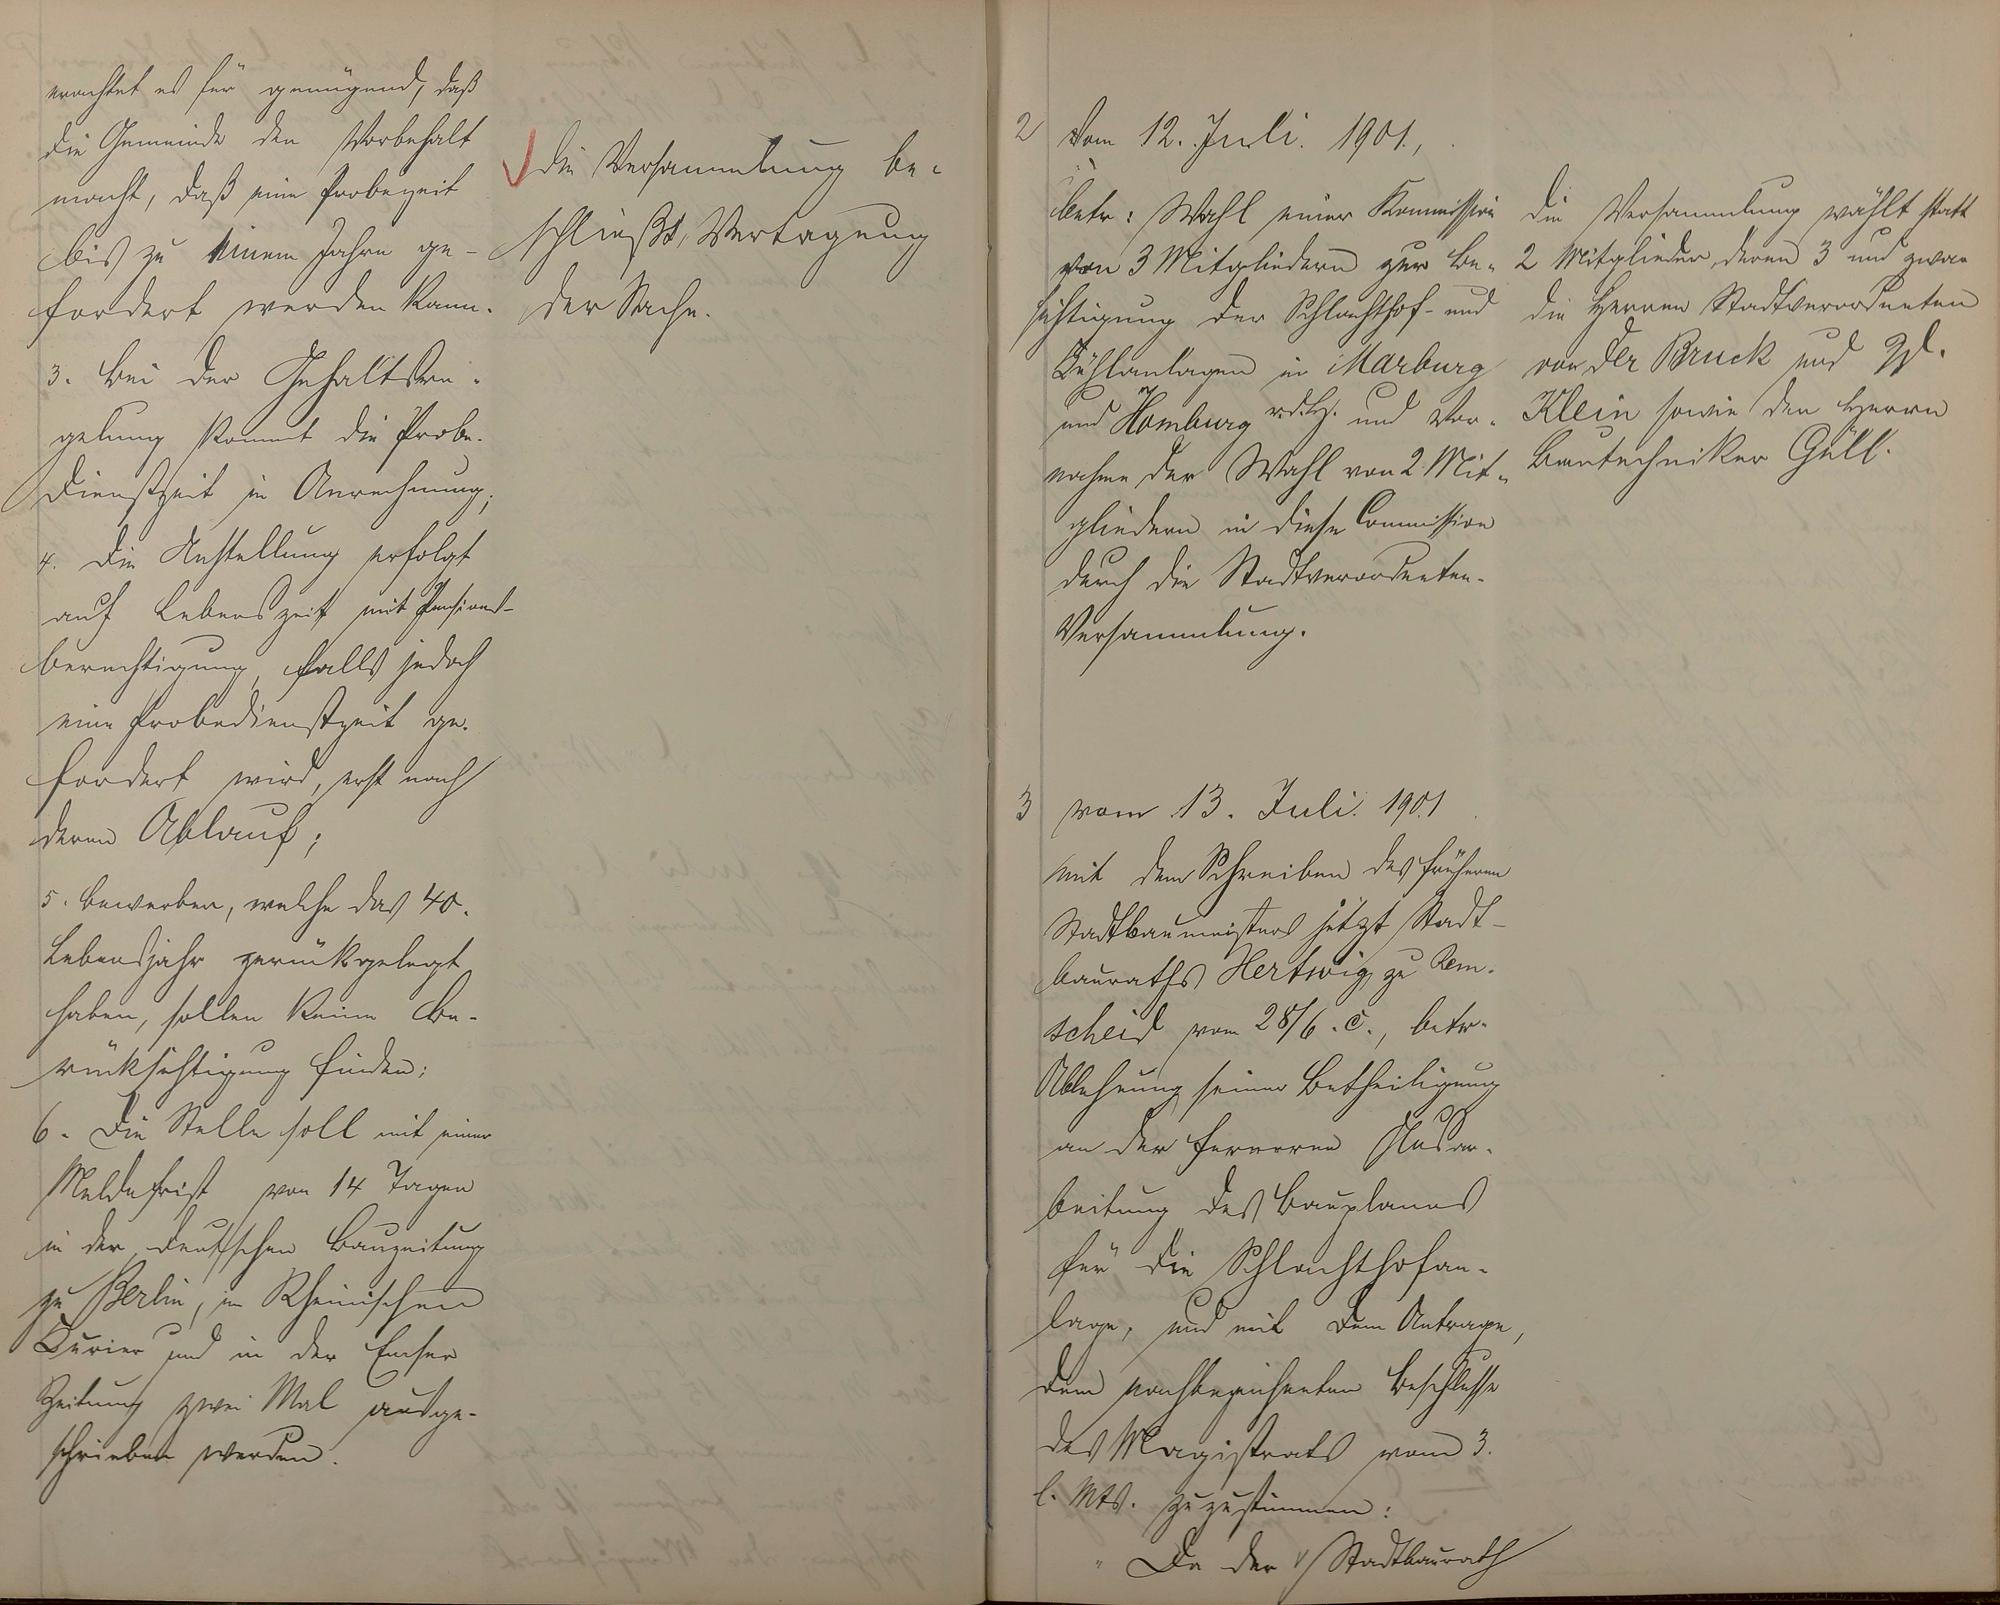 erachtet es für genügend, daß
die Gemeinde den Vorbehalt
macht, daß eine Probezeit
bis zu einem Jahre ge-
fordert werden kann.
3. Bei der Gehaltsre-
gelung kommt die Probe-
dienstzeit in Anrechnung;
4. Die Anstellung erfolgt
auf Lebenszeit mit Pensions-
berechtigung, falls jedoch
eine Probedienstzeit ge-
fordert wird, erst nach
deren Ablauf;
5. Bewerber, welche das 40.
Lebensjahr zurückgelegt
haben, sollen keine Be-
rücksichtigung finden;
6. Die Stelle soll mit einer
Meldefrist von 14 Tagen
in der Deutschen Bauzeitung
zu Berlin, im Rheinischen
Kurier und in der Emser
Zeitung zwei Mal ausge-
schrieben werden.
Die Versammlung be-
schließt, Vertagung
der Sache.
2 Vom 12. Juli. 1901.,
betr: Wahl einer Kommission
von 3 Mitgliedern zur Be-
sichtigung der Schlachthof- und
Kühlanlagen in Marburg
und Homburg v.d.H. und Vor-
nahme der Wahl von 2 Mit-
gliedern in diese Commission
durch die Stadtverordneten-
Versammlung.
Die Versammlung wählt statt
2 Mitglieder, deren 3 und zwar
die Herren Stadtverordneten
von der Bruck und
Klein sowie den Herrn
Bautechniker Güll.
3 vom 13. Juli. 1901
mit dem Schreiben des früheren
Stadtbaumeisters jetzt Stadt-
bauraths Hertwig zu Rem-
scheid vom 28/6. c., betr.
Ablehnung seiner Betheiligung
an der ferneren Ausar-
beitung des Bauplanes
für die Schlachthofan-
lage, und mit dem Antrage,
dem nachbezeichneten Beschlusse
des Magistrats vom 3.
l. Mts. zuzustimmen:
" Da der Stadtbaurath